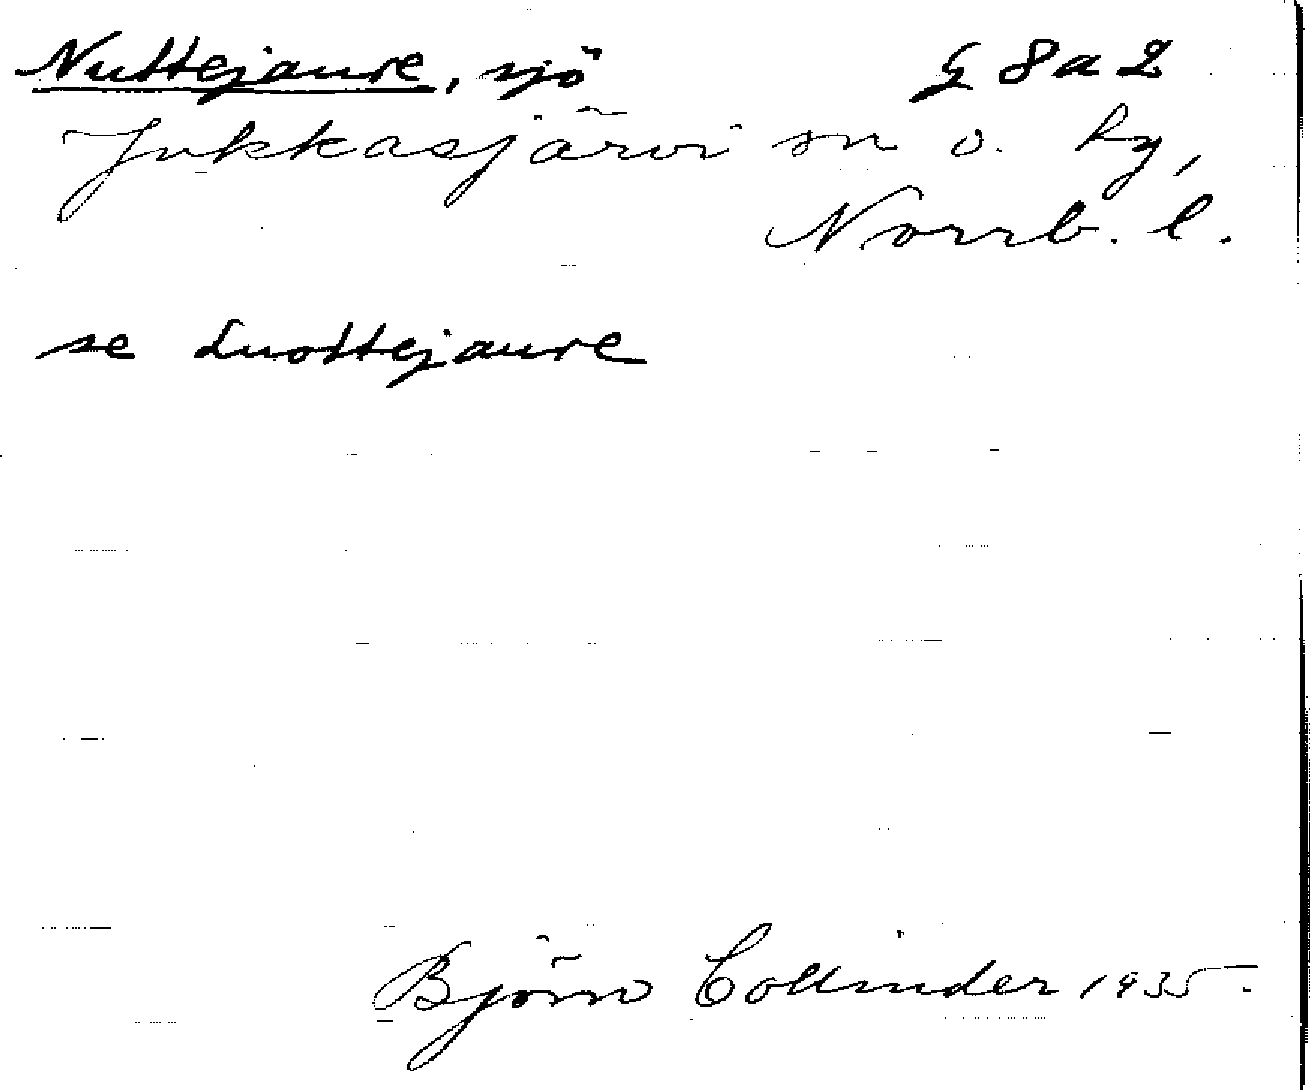 Nuttejaure, sjö G 8 a 2
Jukkasjärvi sn o. hg,
Norrb. l.
se Luottejaure
Björn Collinder 1935.